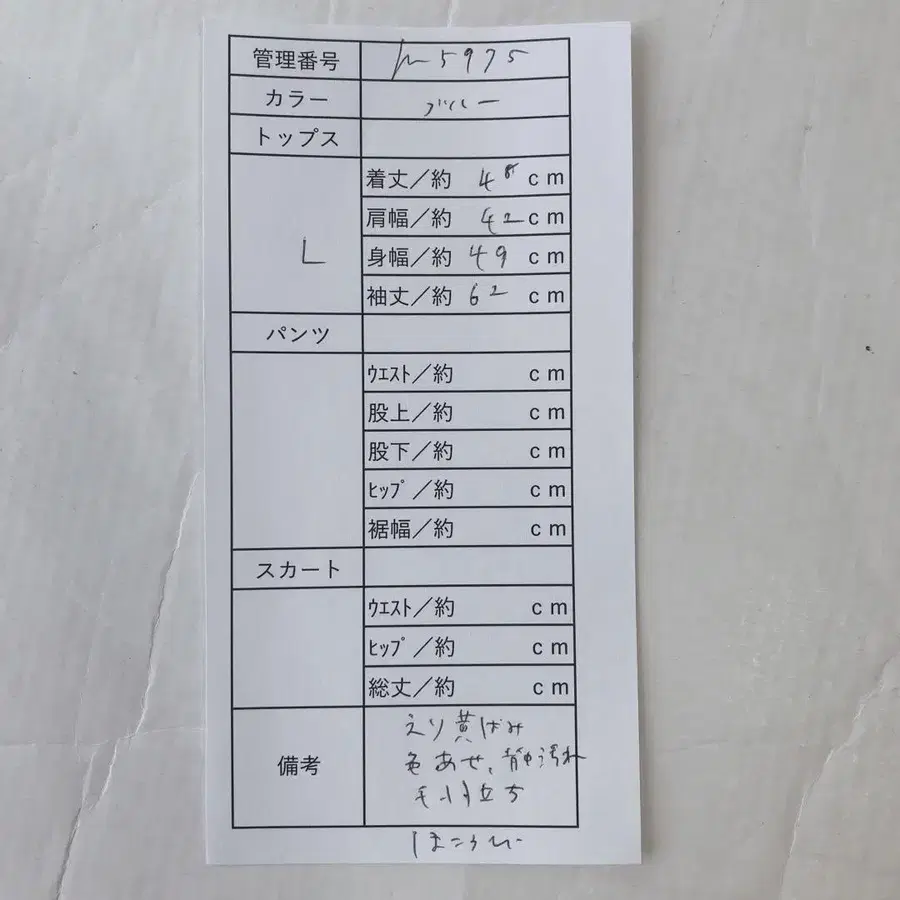 管理番号 5975
カラー ブルー
トップス
L
着丈／約 48 cm
肩幅／約 42 cm
身幅／約 49 cm
袖丈／約 62 cm
パンツ
ｳｴｽﾄ／約 cm
股上／約 cm
股下／約 cm
ﾋｯﾌﾟ／約 cm
裾幅／約 cm
スカート
ｳｴｽﾄ／約 cm
ﾋｯﾌﾟ／約 cm
総丈／約 cm
備考
えり黄ばみ
色あせ、背中汚れ
毛羽立ち
ほころび